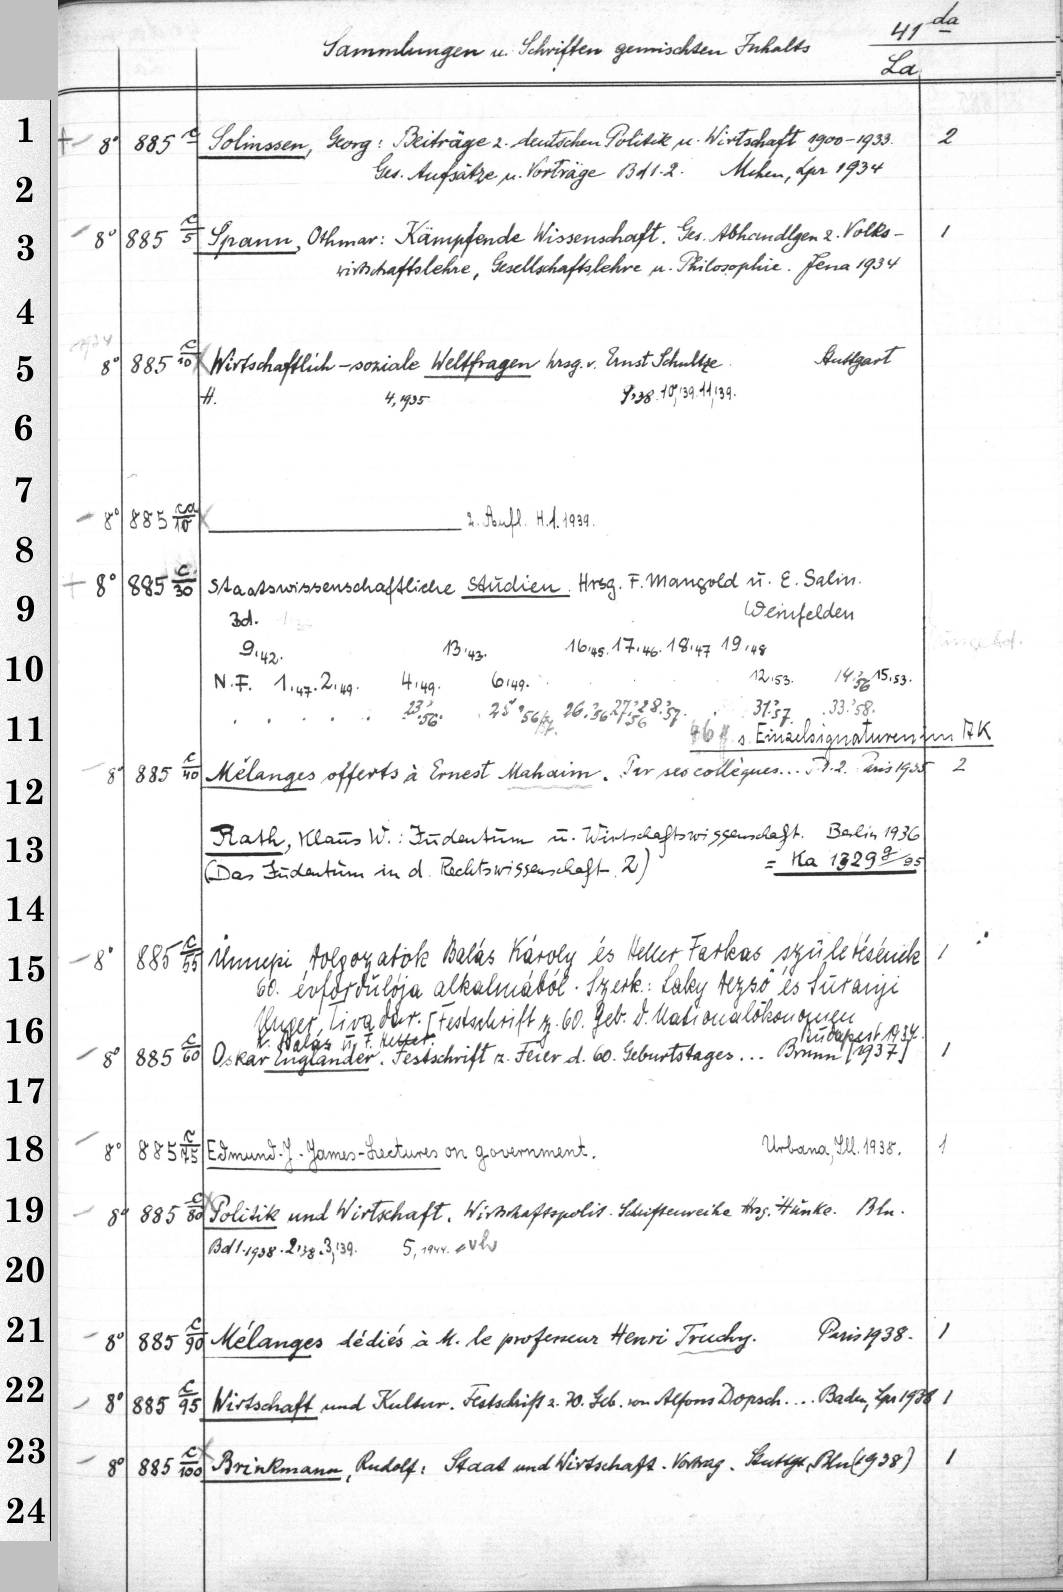 Sammlungen u. Schriften gemischten Inhalts
41 da
La
1
8° 885 c Solmssen, Georg: Beiträge z. deutschen Politik u. Wirtschaft 1900-1933. 2
2
Ges. Aufsätze u. Vorträge Bd 1.2. Mchen, Lpz 1934
3
8° 885 c/5 Spann, Othmar: Kämpfende Wissenschaft. Ges. Abhandlgen z. Volks- 1
wirtschaftslehre, Gesellschaftslehre u. Philosophie. Jena 1934
4
5
8° 885 c/10 Wirtschaftlich-soziale Weltfragen hrsg. v. Ernst Schultze. Stuttgart
H. 4,1935 9,38. 10,139. 11,139.
6
7
8° 885 ca/10 2. Aufl. H.1.1939.
8
8° 885 c/30 Staatswissenschaftliche Studien. Hrsg. F. Mangold u. E. Salin.
9
Bd. Weinfelden
9,42. 13,43. 16,45. 17,46. 18,47 19,48
10
N.F. 1,47. 2,49. 4,49. 6,49. 12,53. 14,56 15,53.
23,56. 25,56/57. 26,56 27,56 28,57. 31,57. 33,58.
11
s. Einzelsignaturen im AK
8° 885 c/40 Mélanges offerts à Ernest Mahaim. Par ses collègues... T.1.2. Paris 1935 2
12
Rath, Klaus W.: Judentum u. Wirtschaftswissenschaft. Berlin 1936
13
(Das Judentum in d. Rechtswissenschaft. 2) = Ka 1329 g/95
14
8° 885 c/55 Ünnepi dolgozatok Balás Károly és Heller Farkas születésének 1
15
60. évfordulója alkalmából. Szerk: Laky Dezső és Surányi
Unger, Tivadar. [Festschrift z. 60. Geb. d. Nationalökonomen
16
K. Balás u. F. Heller. Budapest 1937.
8° 885 c/60 Oskar Engländer. Festschrift z. Feier d. 60. Geburtstages... Brünn [1937] 1
17
18
8° 885 c/75 Edmund-J.-James-Lectures on government. Urbana, Ill. 1938. 1
19
8° 885 c/80 Politik und Wirtschaft. Wirtschaftspolit. Schriftenreihe Hrsg. Hunke. Bln.
Bd 1.1938. 2,38. 3,139. 5, 1944.
20
21
8° 885 c/90 Mélanges dédiés à M. le professeur Henri Truchy. Paris 1938. 1
22
8° 885 c/95 Wirtschaft und Kultur. Festschrift z. 70. Geb. von Alfons Dopsch.... Baden, Lpz 1938 1
23
8° 885 c/100 Brinkmann, Rudolf: Staat und Wirtschaft. Vortrag. Stuttgt, Bln (1938) 1
24